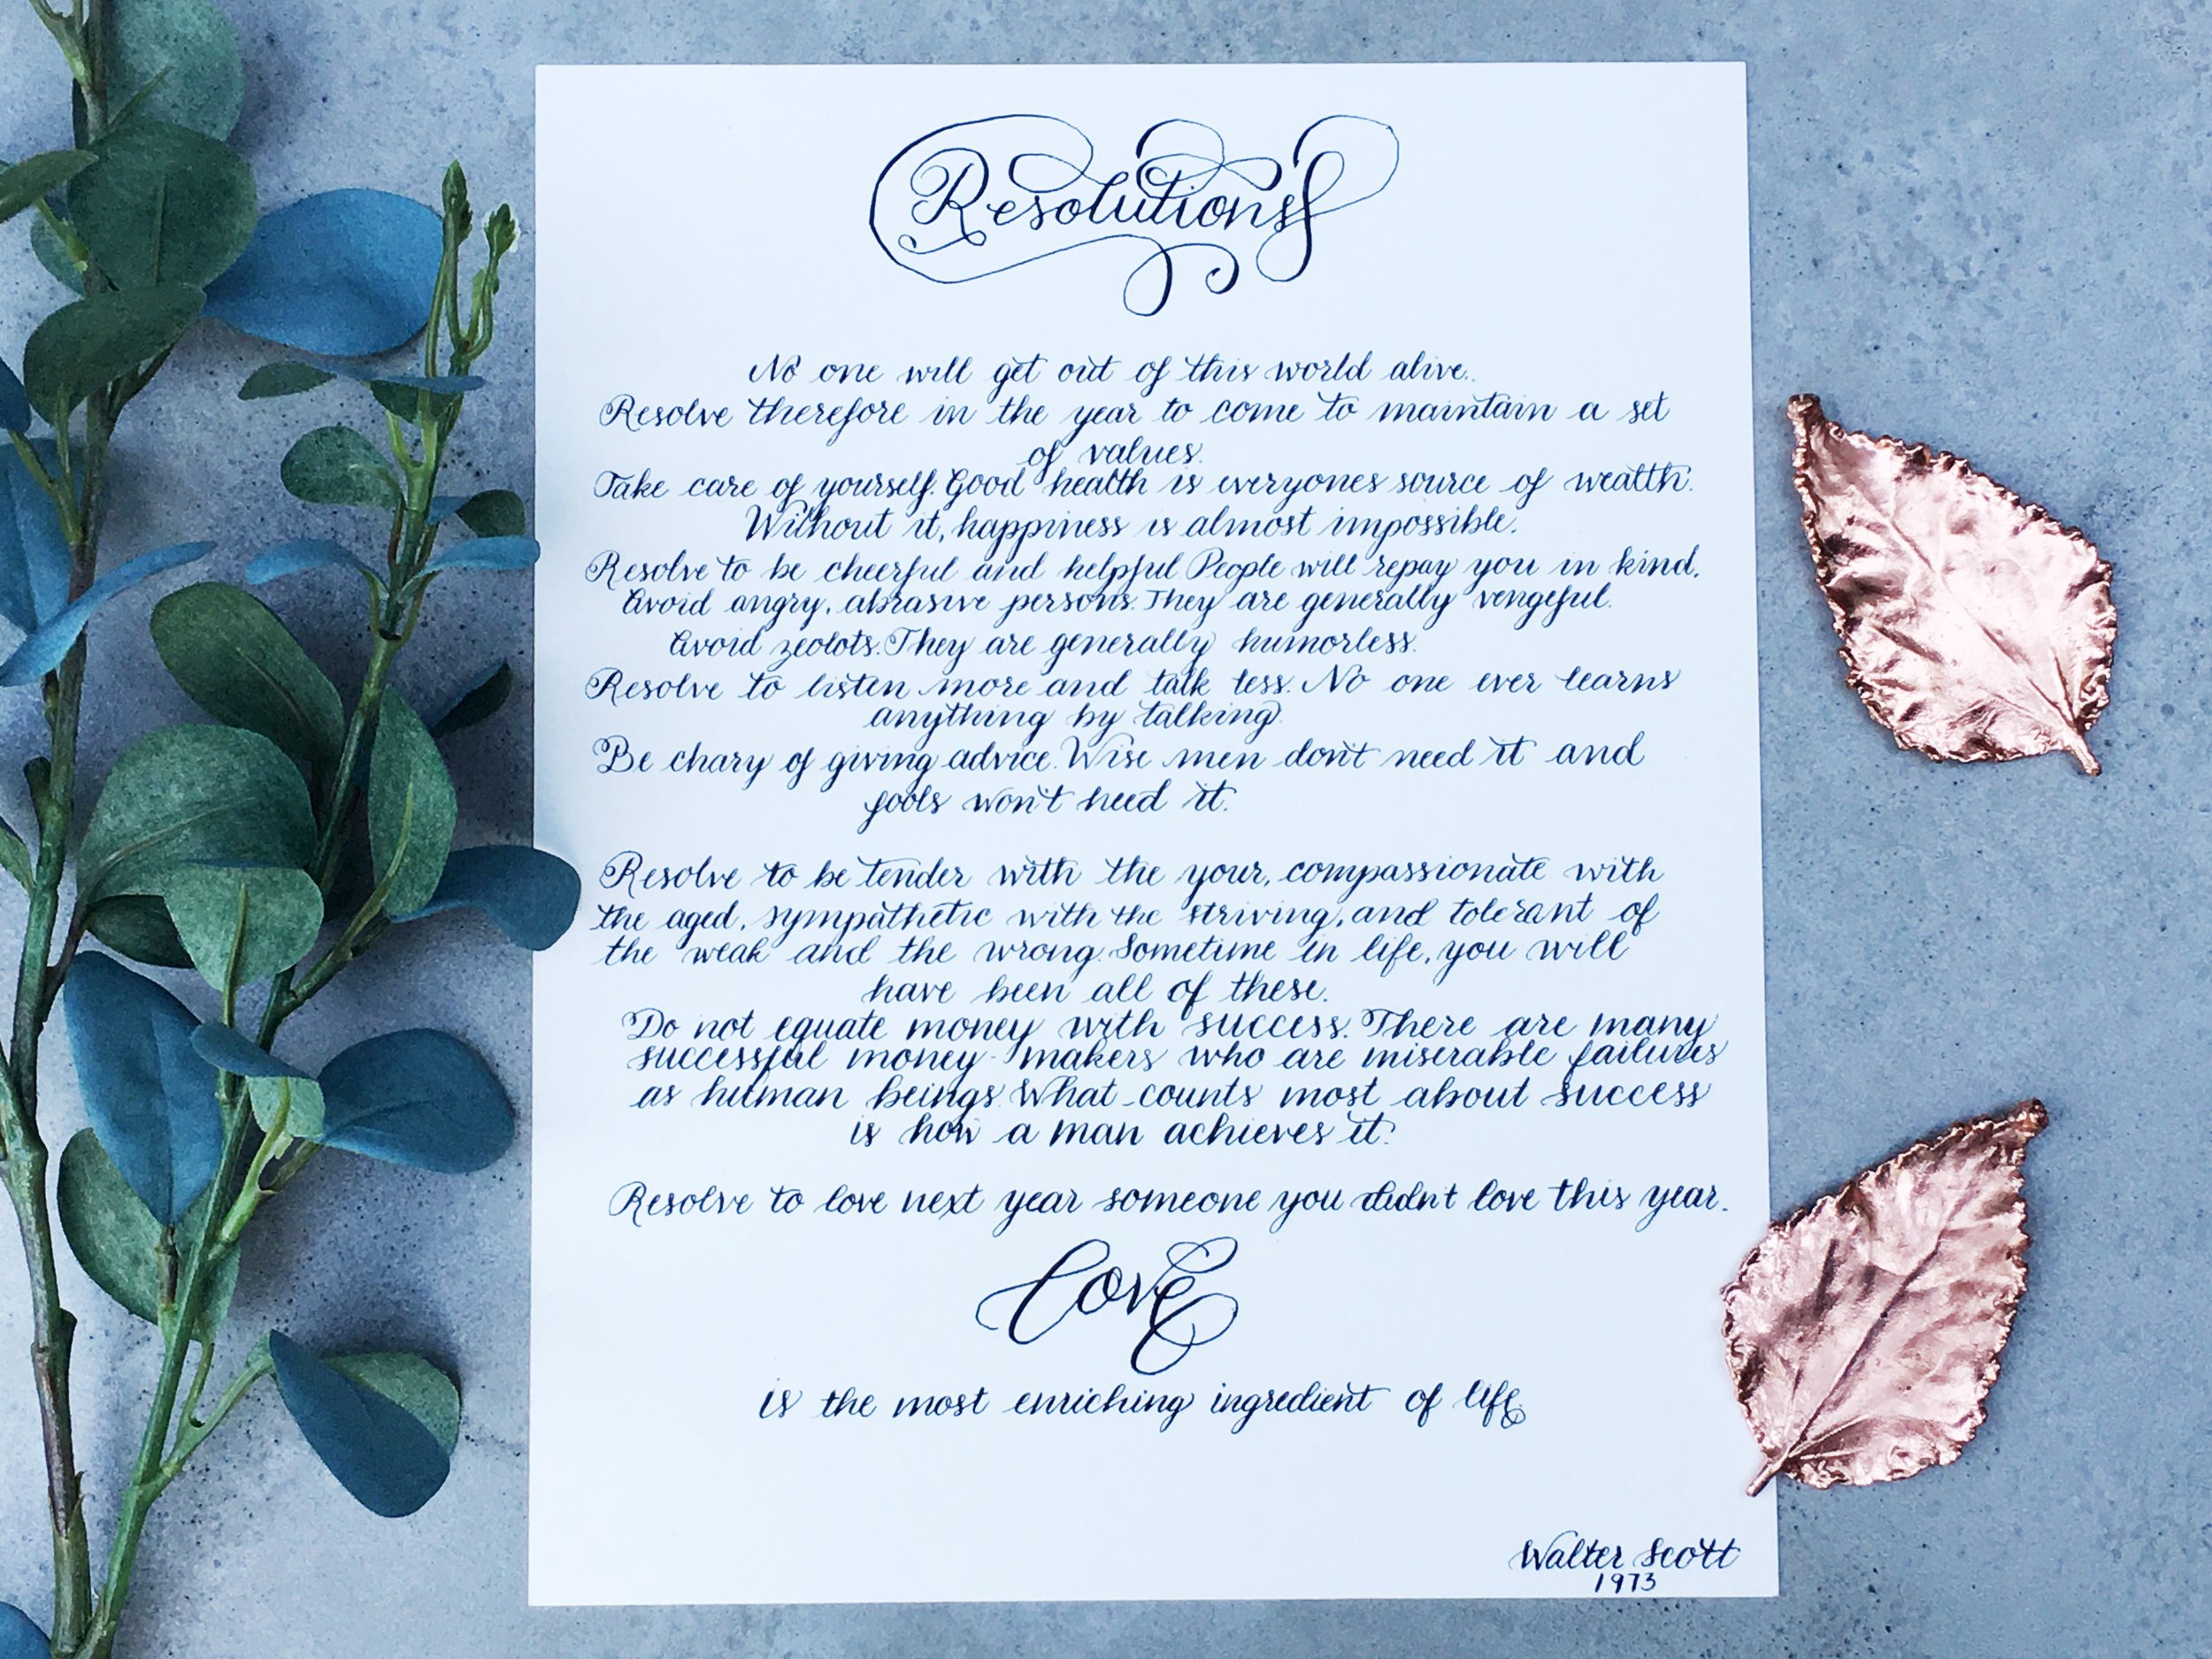 Resolutions
No one will get out of this world alive.
Resolve therefore in the year to come to maintain a set
of values.
Take care of yourself. Good health is everyones source of wealth.
Without it, happiness is almost impossible.
Resolve to be cheerful and helpful. People will repay you in kind.
Avoid angry, abrasive persons. They are generally vengeful.
Avoid zeolots. They are generally humorless.
Resolve to listen more and talk less. No one ever learns
anything by talking.
Be chary of giving advice. Wise men don't need it and
fools won't heed it.
Resolve to be tender with the your, compassionate with
the aged, sympathetic with the striving, and tolerant of
the weak and the wrong. Sometime in life, you will
have been all of these.
Do not equate money with success. There are many
successful money-makers who are miserable failures
as human beings. What counts most about success
is how a man achieves it.
Resolve to love next year someone you didn't love this year.
Love
is the most enriching ingredient of life
Walter Scott
1973